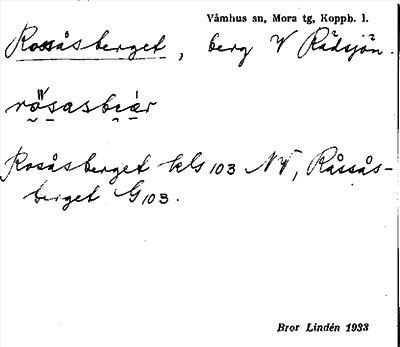 Våmhus sn, Mora tg, Koppb. l.
Rossåsberget, berg V Rädsjön.
rösasbiär
Rosåsberget kls 103 NV, Råssås-
berget G 103.
Bror Lindén 1933